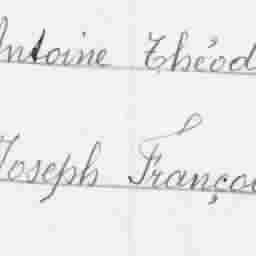 Antoine Théod
Joseph Françoi